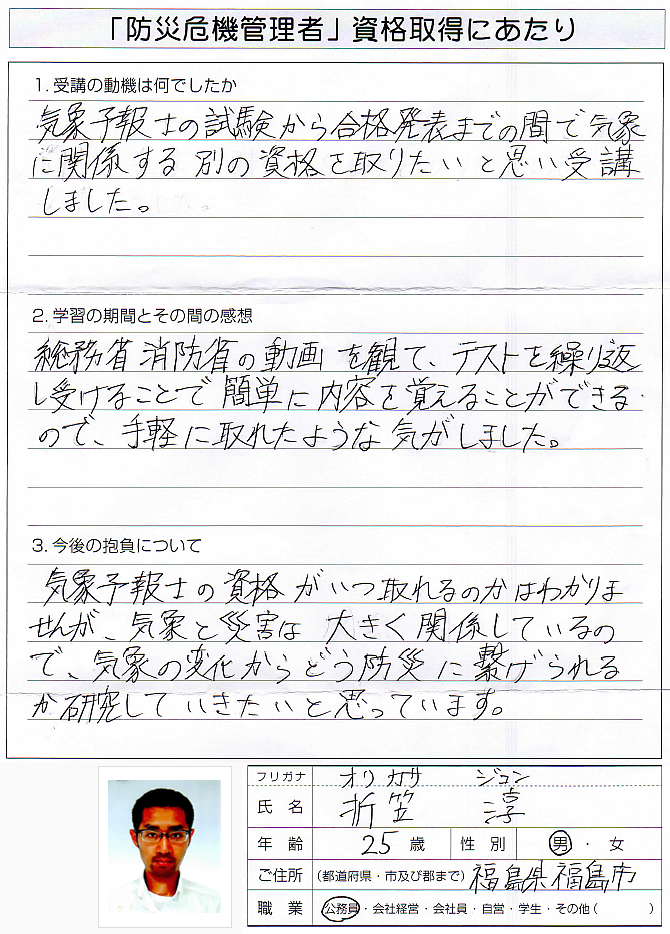 「防災危機管理者」資格取得にあたり
1. 受講の動機は何でしたか
気象予報士の試験から合格発表までの間で気象
に関係する 別の資格を取りたいと思い受講
しました。
2. 学習の期間とその間の感想
総務省消防省の動画を観て、テストを繰り返
し受けることで簡単に内容を覚えることができる
ので、手軽に取れたような気がしました。
3. 今後の抱負について
気象予報士の資格がいつ取れるのかはわかりま
せんが、気象と災害は 大きく関係しているの
で、気象の変化からどう防災に繋げられる
か研究していきたいと思っています。
フリガナ オリカサ ジュン
氏名 折笠 淳
年齢 25歳 性別 男・女
ご住所 (都道府県・市及び郡まで) 福島県福島市
職業 公務員・会社経営・会社員・自営・学生・その他( )